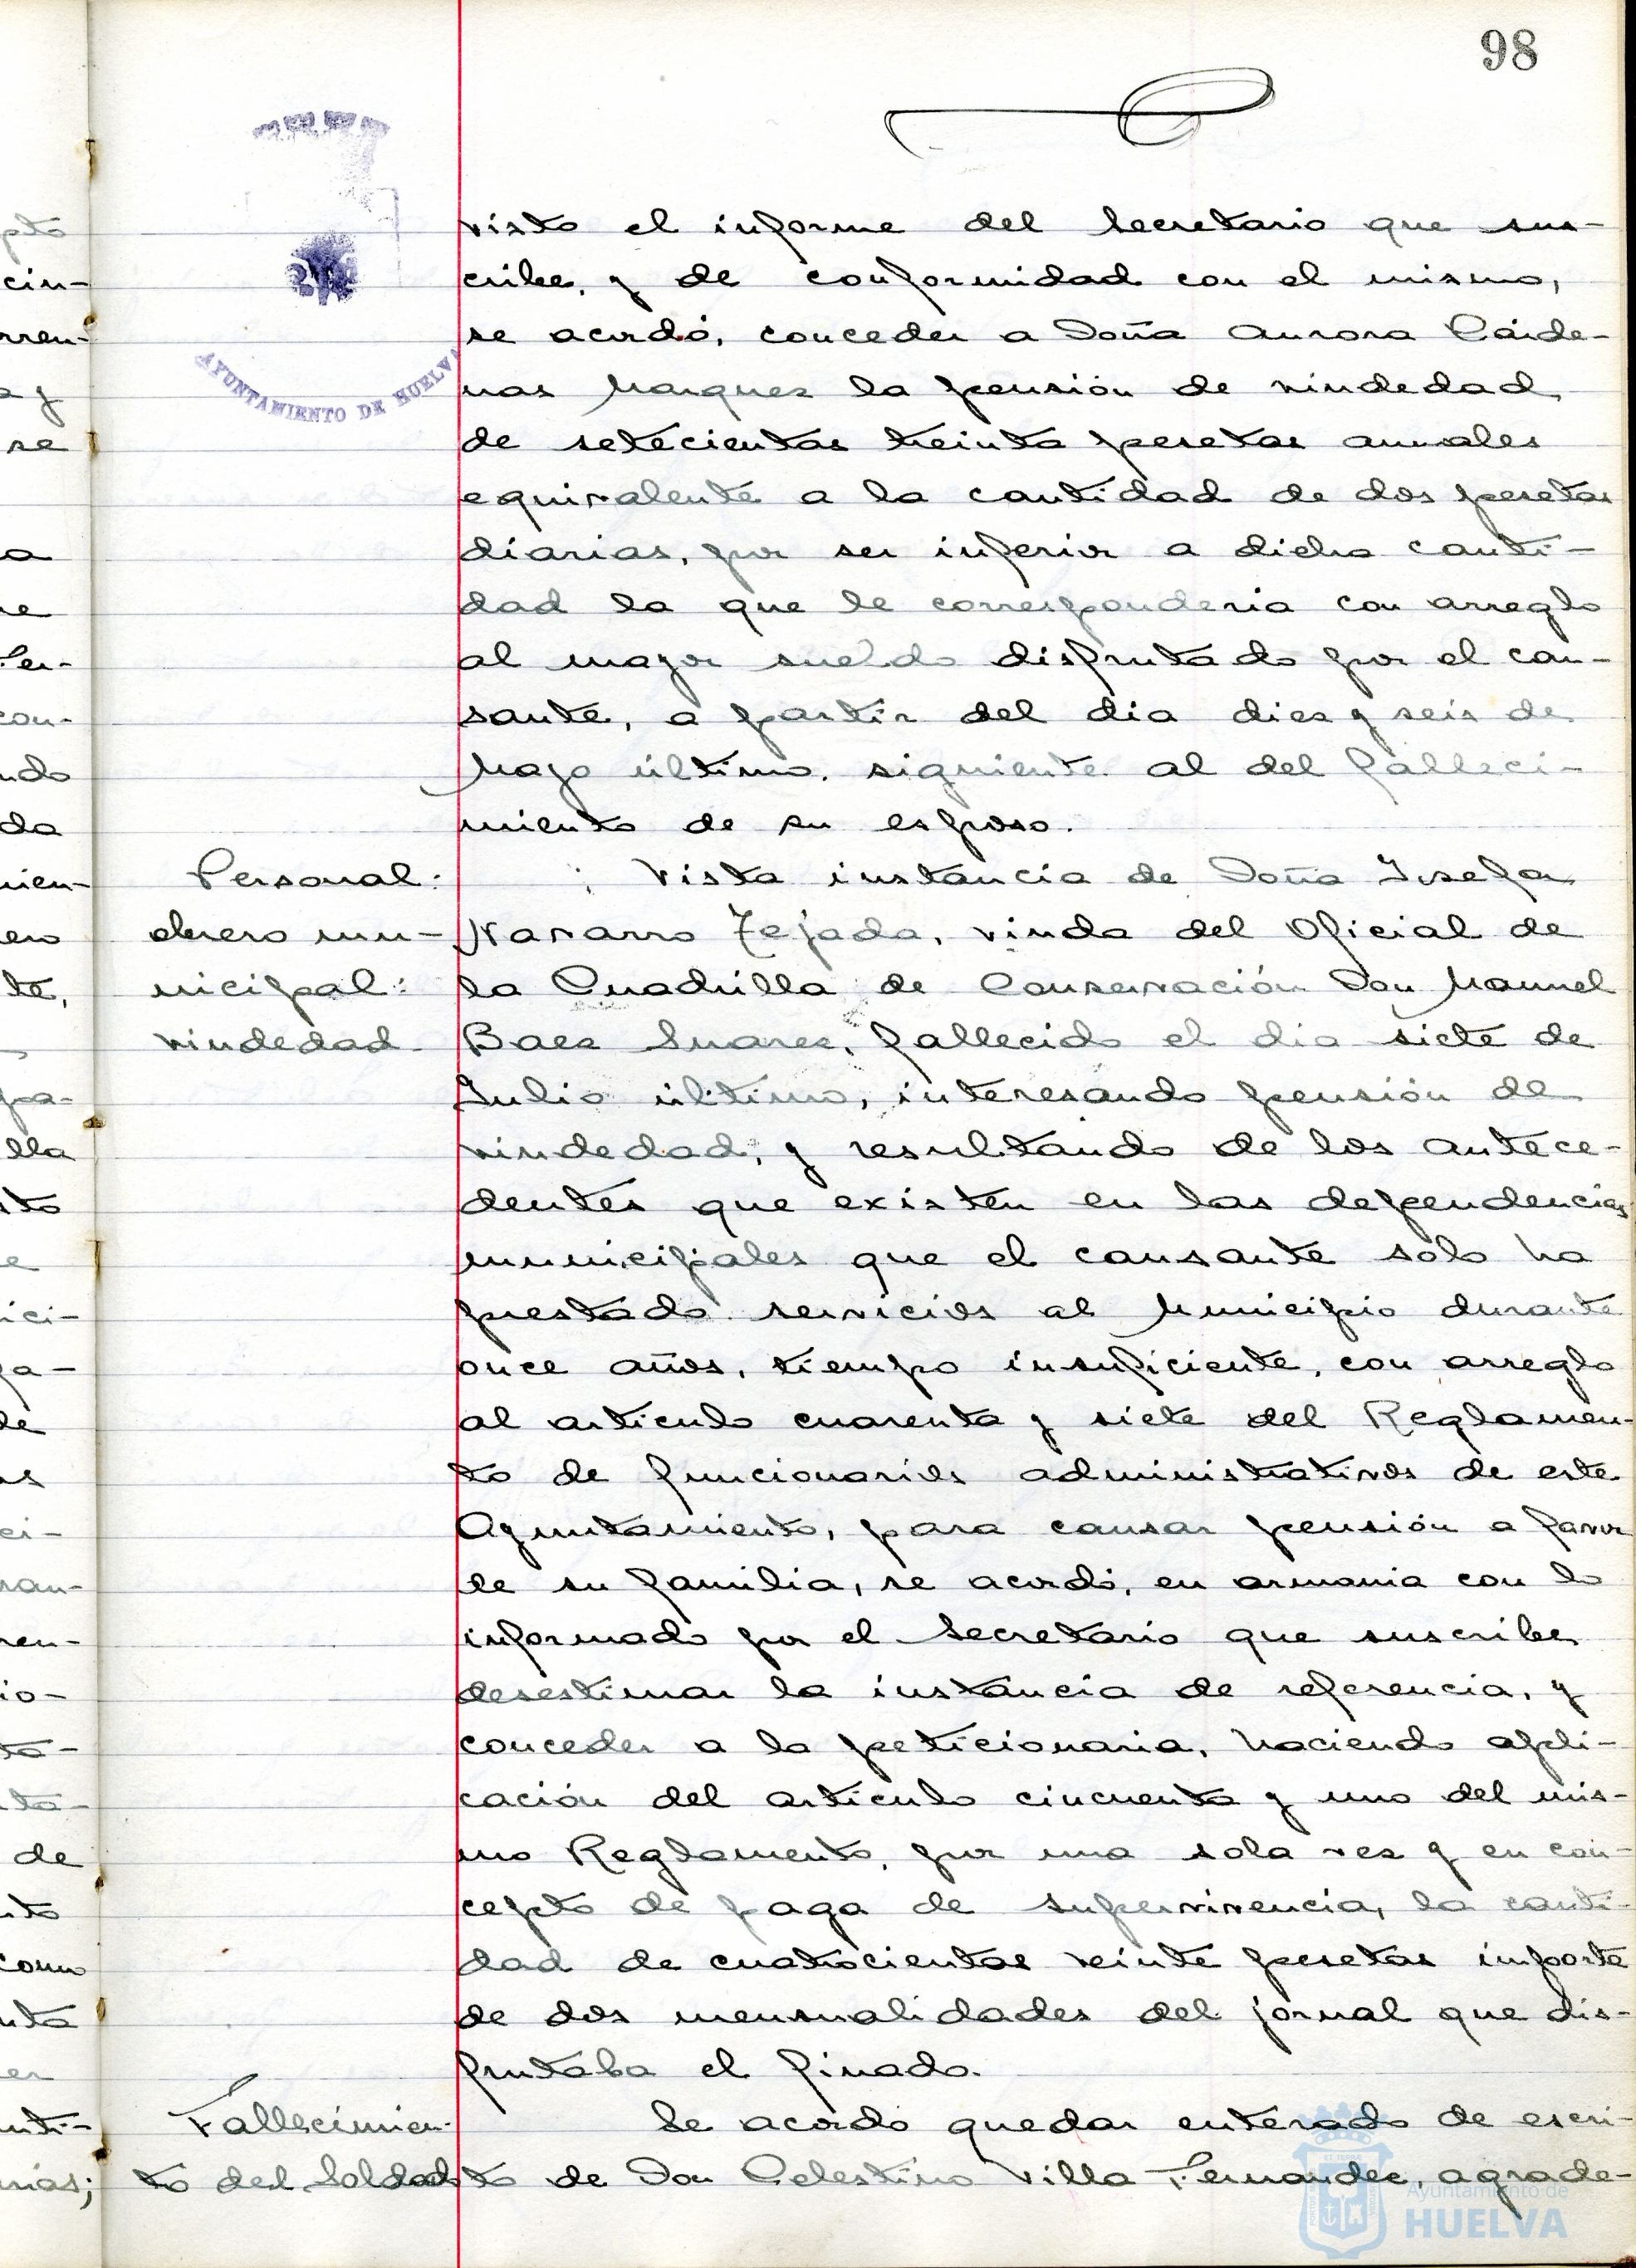 98
AYUNTAMIENTO DE HUELVA
visto el informe del Secretario que sus-
cribe, y de conformidad con el mismo,
se acordó, conceder a Doña Aurora Cárde-
nas Marquez la pensión de viudedad
de setecientas treinta pesetas anuales
equivalente a la cantidad de dos pesetas
diarias, por ser inferior a dicha canti-
dad la que le corresponderia con arreglo
al mayor sueldo disfrutado por el cau-
sante, a partir del dia diez y seis de
Mayo último, siguiente al del falleci-
miento de su esposo.
Personal:
obrero mu-
nicipal:
viudedad
Vista instancia de Doña Josefa
Navarro Tejada, viuda del Oficial de
la Cuadrilla de Conservación Don Manuel
Baez Suarez, fallecido el dia siete de
Julio último, interesando pensión de
viudedad; y resultando de los antece-
dentes que existen en las dependencias
municipales que el causante solo ha
prestado servicios al Municipio durante
once años, tiempo insuficiente, con arreglo
al articulo cuarenta y siete del Reglamen-
to de funcionarios administrativos de este
Ayuntamiento, para causar pensión a favor
de su familia, se acordó, en armonia con lo
informado por el Secretario que suscribe,
desestimar la instancia de referencia, y
conceder a la peticionaria, haciendo apli-
cación del articulo cincuenta y uno del mis-
mo Reglamento, por una sola vez y en con-
cepto de paga de supervivencia, la canti-
dad de cuatrocientas veinte pesetas importe
de dos mensualidades del jornal que dis-
frutaba el finado.
Fallecimien-
to del Soldado
Se acordó quedar enterado de escri-
to de Don Celestino Villa Fernandez, agrade-
Ayuntamiento de
HUELVA